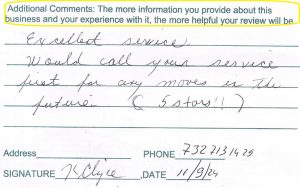 Additional Comments: The more information you provide about this
business and your experience with it, the more helpful your review will be
Excellent service
Would call your service
first for any moves in the
future ( 5 stars!! )
Address PHONE 732 713 14 29
SIGNATURE ,DATE 11/9/24